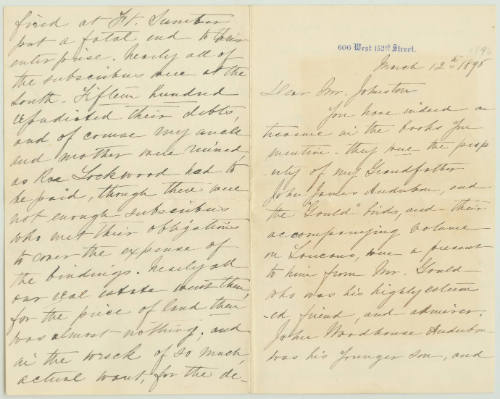 606 West 152nd Street.
March 12th 1898
Dear Mr. Johnston
You have indeed a
treasure in the books you
mention. they were the prop
erty of my Grandfather
John James Audubon, and
the "Gould" birds, and their
accompanying volume
on Toucans, were a present
to him from Mr. Gould
who was his highly esteem
-ed friend, and admirer.
John Woodhouse Audubon
was his younger son, and
fired at Ft. Sumter
put a fatal end to this
enterprise. Nearly all of
the subscribers were at the
South. Fifteen hundred
repudiated their debts,
and of course my uncle
and mother were ruined,
as Roe Lockwood had to
be paid, though there were
not enough subscribers
who met their obligations
to cover the expense of
the bindings. Nearly all
our real estate went then,
for the price of land then
was almost nothing, and
in the wreck of so much,
actual want, for the de-